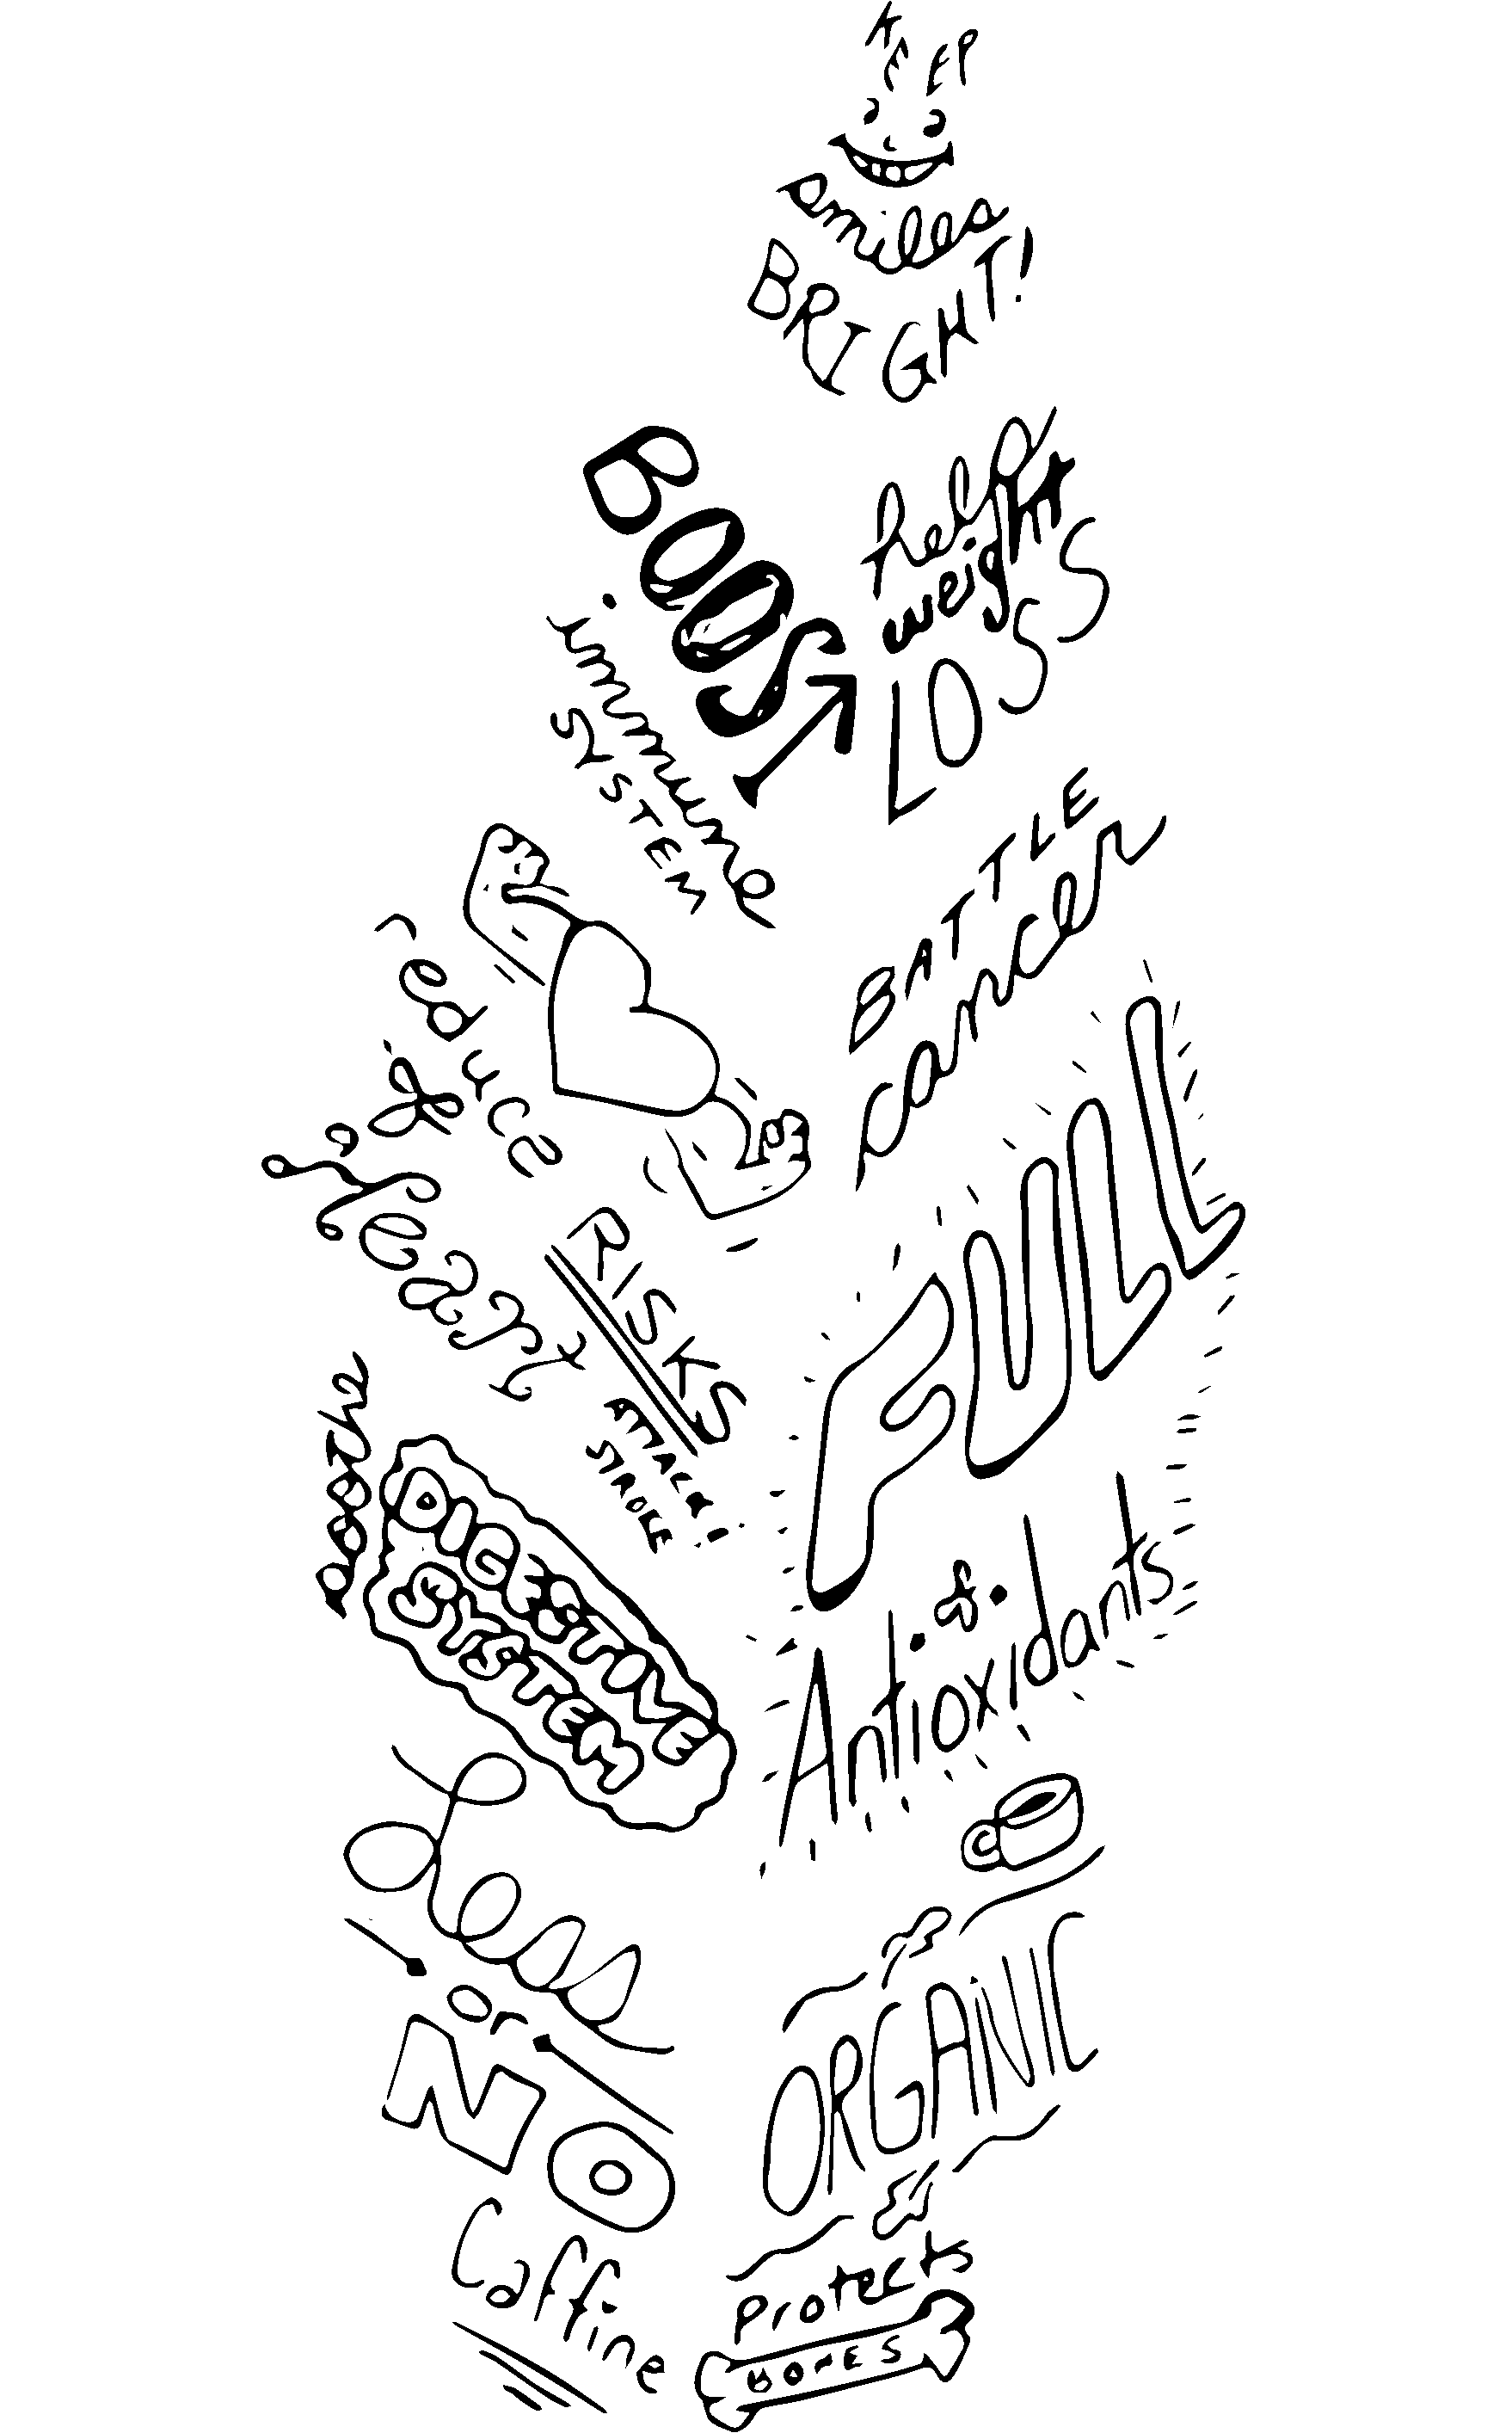 KEEP
smiles
BRIGHT!
BOOST
immune
SYSTEM
help
weight
LOSS
BATTLE
cancer
reduce
RISKS
heart
ATTACK
STROKE
FULL
&
Antioxidants
soothe
DIGESTIVE
SYSTEM
Less
or
NO
Caffine
ORGANIC
protects
BONES